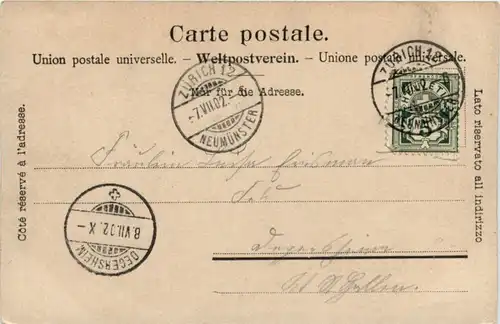 Carte postale.
Union postale universelle. - Weltpostverein. - Unione postale universale.
Nur für die Adresse.
Côté réservé à l'adresse.
Lato riservato all indirizzo
ZÜRICH 12
-7.VII.02.
NEUMÜNSTER
ZÜRICH 12
NEUMÜNSTER
DEGERSHEIM
8.VII.02.X-
Fräulein
Degersheim
Kt St Gallen.